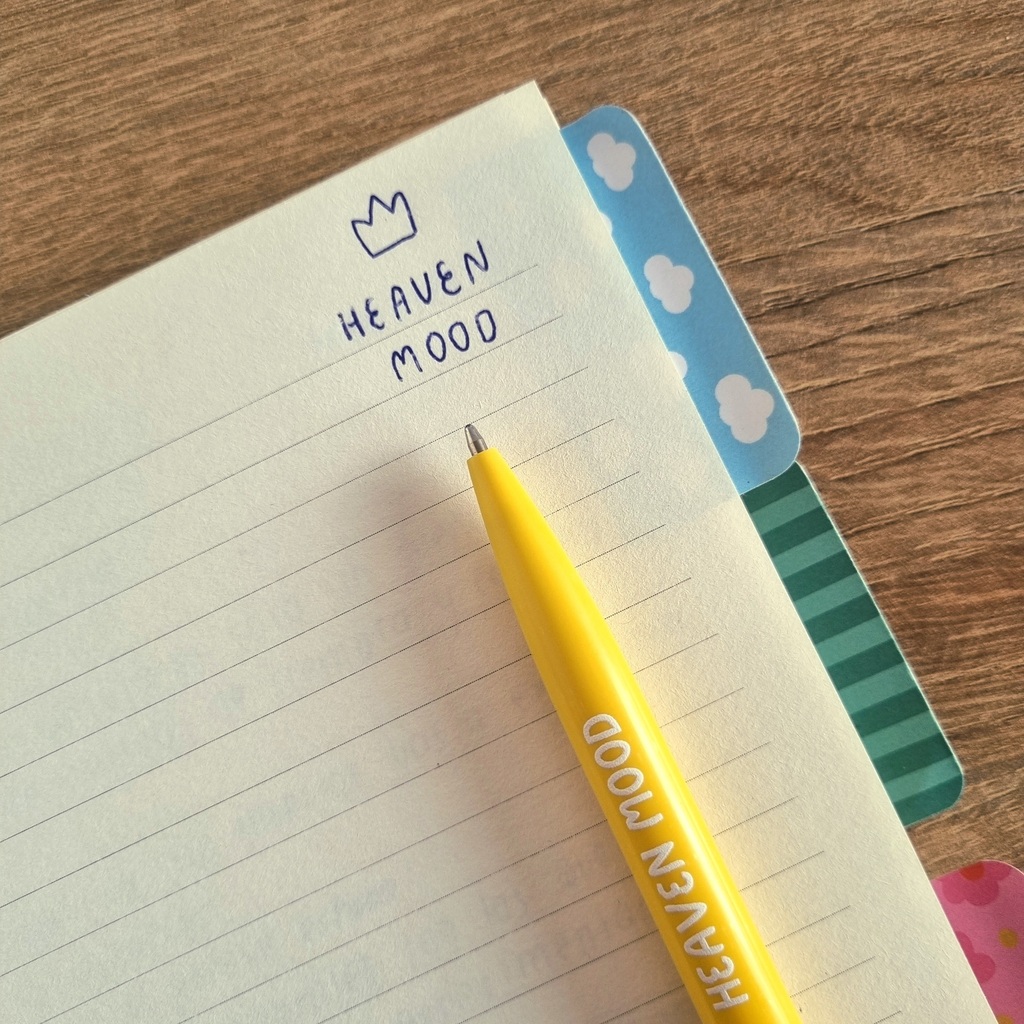 HEAVEN
MOOD
HEAVEN MOOD